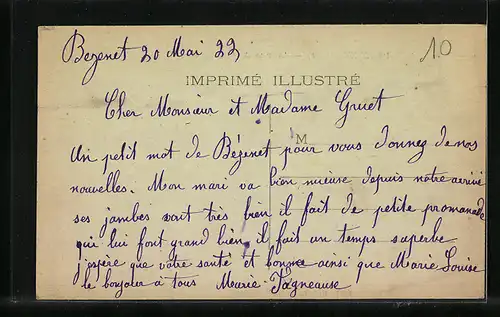 Bezenet 20 Mai 22
10
IMPRIMÉ ILLUSTRÉ
Cher Monsieur et Madame Gruet
M
Un petit mot de Bézenet pour vous donnez de nos
nouvelles. Mon mari va bien mieuse depuis notre arrivé
ses jambes vont très bien il fait de petite promenade
qui lui font grand bien, il fait un temps superbe
j'espère que votre santé et bonne ainsi que Marie Louise
le bonjour à tous Marie Tagneause